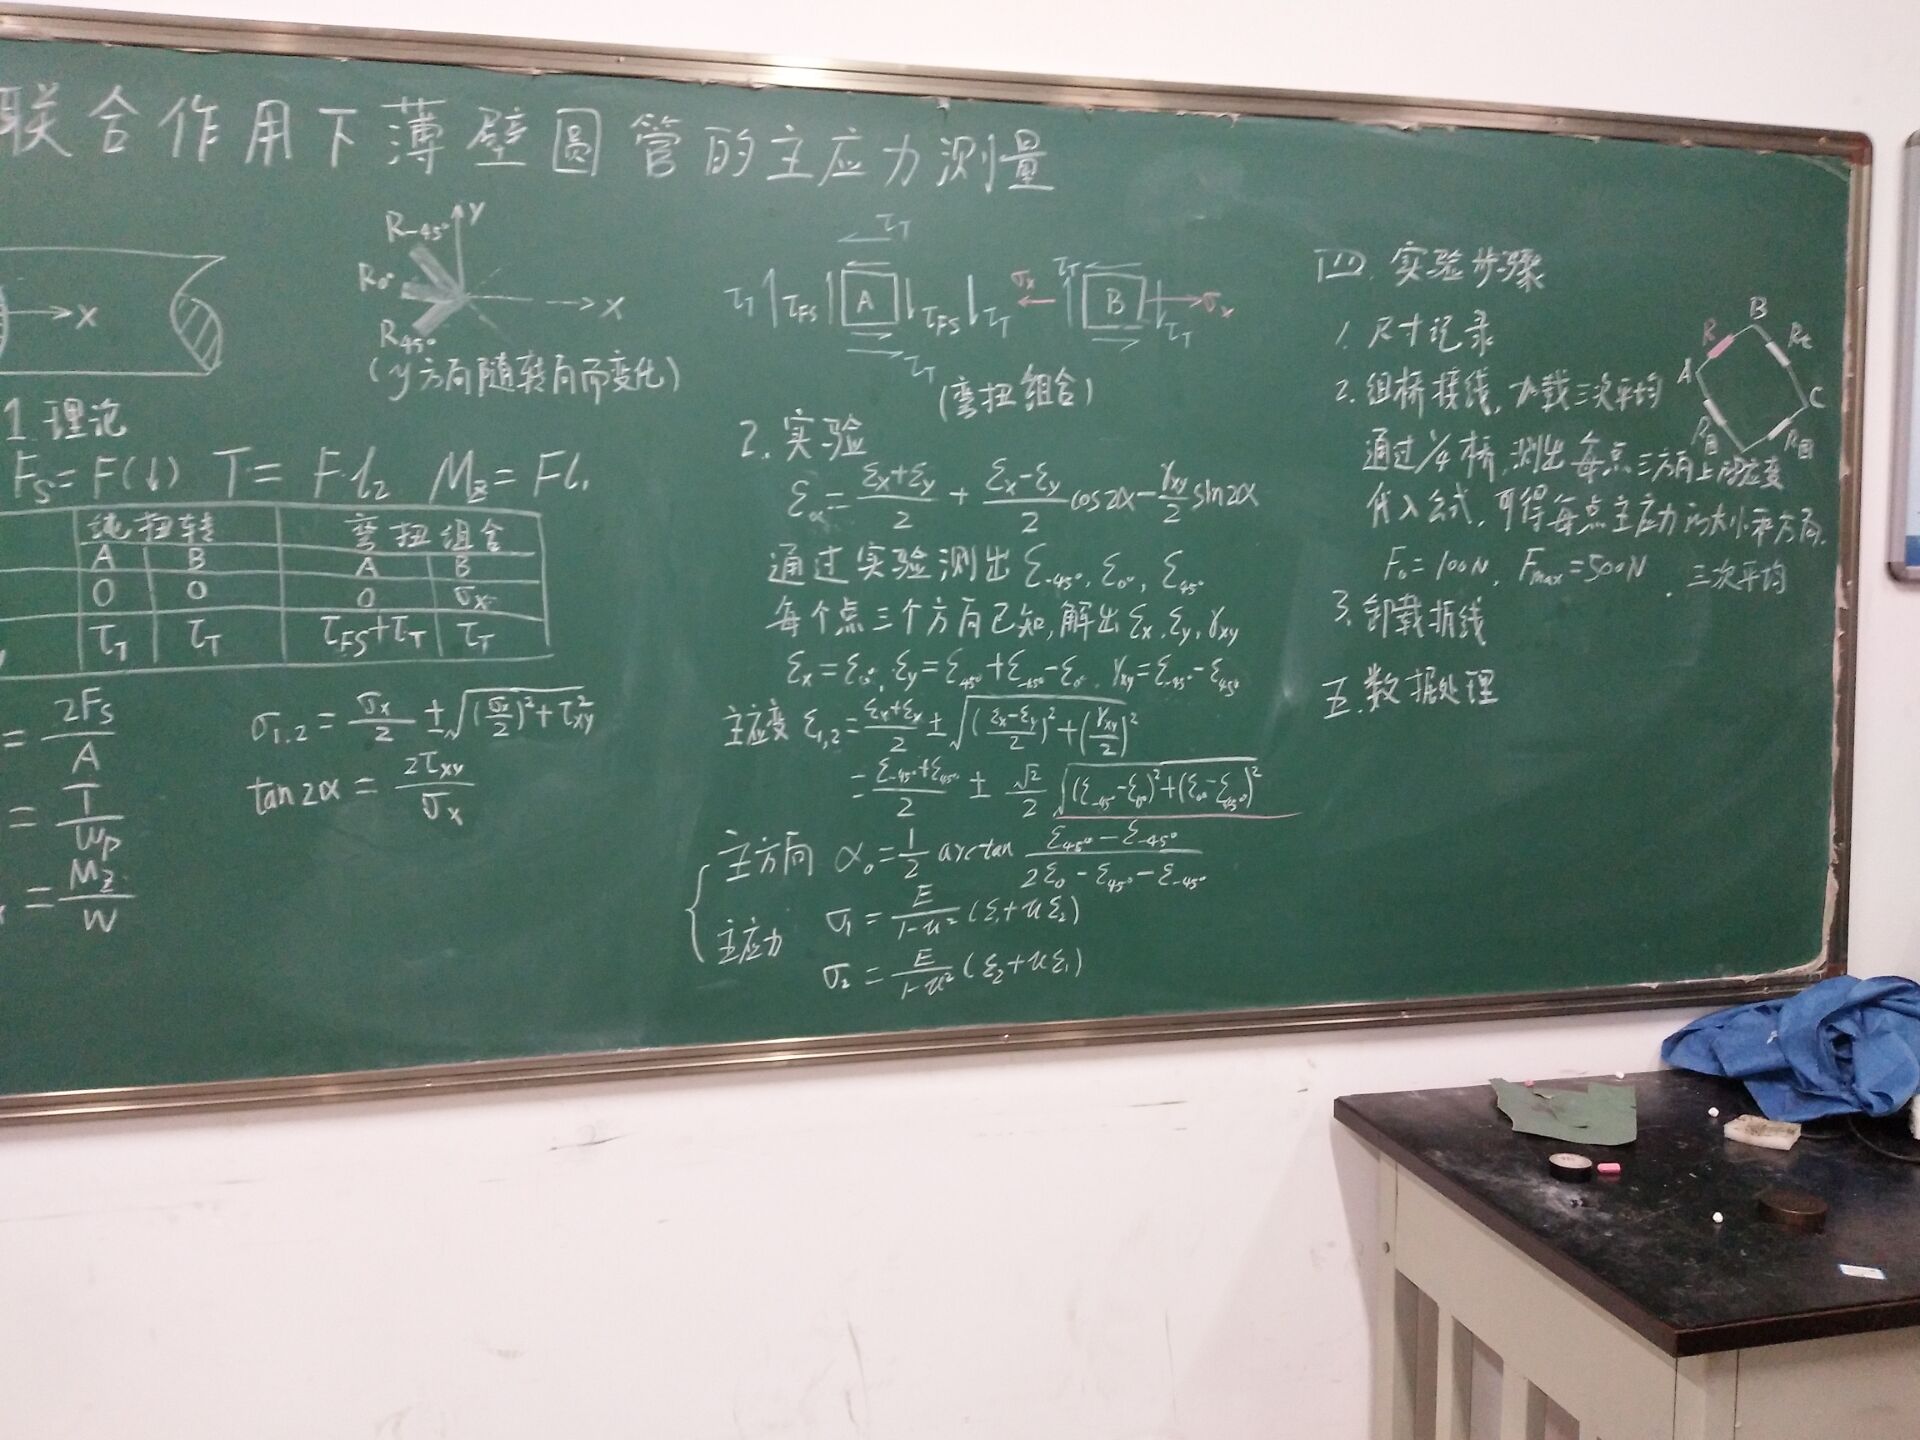 联合作用下薄壁圆管的主应力测量
x
R-45° y
R0° x
R45°
(y方向随转向而变化)
1 理论
Fs=F(↓) T=F·l2 Mz=Fl1
纯扭转 弯扭组合
A B A B
0 0 0 σx
τT τT τFS+τT τT
= 2Fs/A
= T/Wp
= Mz/W
σ1,2 = σx/2 ± √((σx/2)²+τ²xy)
tan2α = 2τxy/σx
τT
τT τFS A τFS τT
τT
τT
σx B σx
τT
(弯扭组合)
2. 实验
εα = (εx+εy)/2 + (εx-εy)/2 cos2α - γxy/2 sin2α
通过实验测出 ε-45°, ε0°, ε45°
每个点三个方向已知,解出 εx, εy, γxy
εx=ε0°, εy=ε45°+ε-45°-ε0°, γxy=ε-45°-ε45°
主应变 ε1,2 = (εx+εy)/2 ± √(((εx-εy)/2)²+(γxy/2)²)
= (ε-45°+ε45°)/2 ± √2/2 √((ε-45°-ε0°)²+(ε0°-ε45°)²)
主方向 α0 = 1/2 arctan (ε45°-ε-45°)/(2ε0-ε45°-ε-45°)
主应力 σ1 = E/(1-u²) (ε1+uε2)
σ2 = E/(1-u²) (ε2+uε1)
四. 实验步骤
1. 尺寸记录
2. 组桥接线, 加载三次平均
通过1/4桥,测出每点三方向上的应变
代入公式,可得每点主应力的大小和方向.
F0=100N, Fmax=500N. 三次平均
3. 卸载拆线
五.数据处理
B
R Rt
A C
R固 R固